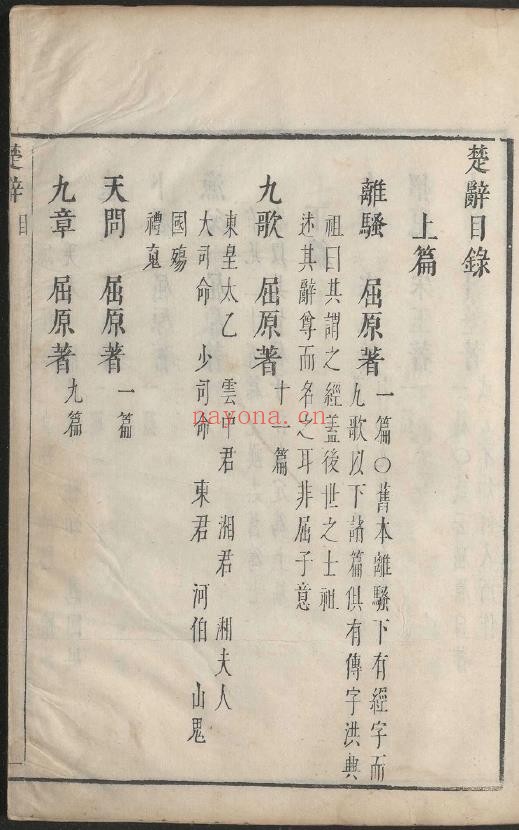 楚辭目錄
上篇
離騷 屈原著 一篇○舊本離騷下有經字而
九歌以下諸篇俱有傳字洪興
祖曰其謂之經蓋後世之士祖
述其辭尊而名之耳非屈子意
九歌 屈原著 十一篇
東皇太乙 雲中君 湘君 湘夫人
大司命 少司命 東君 河伯 山鬼
國殤
禮魂
天問 屈原著 一篇
九章 屈原著 九篇
楚辭 目
nayona.cn